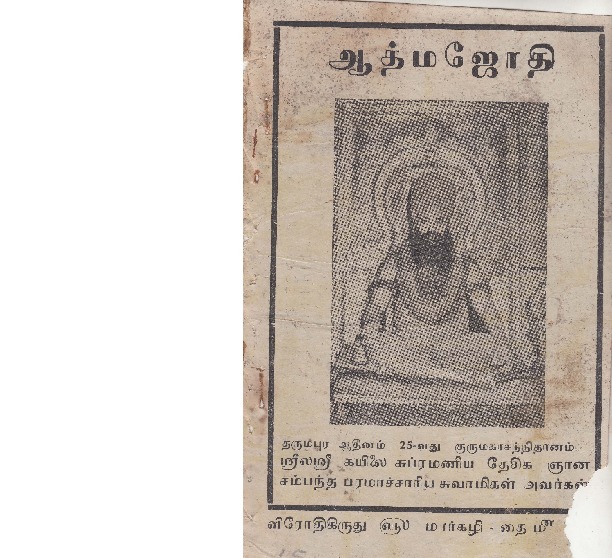 ஆத்மஜோதி
தருமபுர ஆதீனம் 25-வது குருமகாசந்நிதானம்
ஸ்ரீலஸ்ரீ கயிலை சுப்ரமணிய தேசிக ஞான
சம்பந்த பரமாச்சாரிய சுவாமிகள் அவர்கள்
விரோதிகிருது ௵ மார்கழி - தை ௴